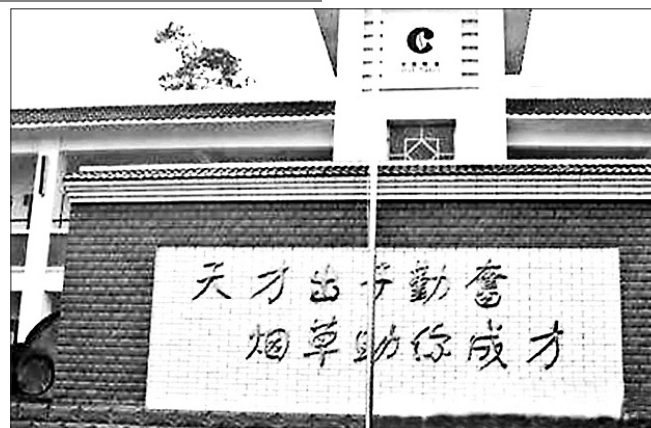 天才出于勤奋
烟草助你成才